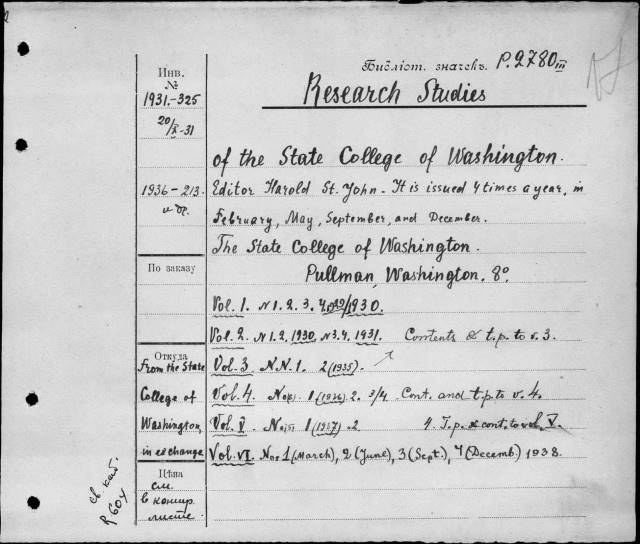 Библіот. значекъ. P.2780 III
Research Studies
Инв.
№
1931.-325
20/X-31
of the State College of Washington.
1936-213.
и др.
Editor Harold St. John. - It is issued 4 times a year, in
February, May, September, and December.
The State College of Washington.
Pullman, Washington, 8°.
По заказу
Vol. 1. N 1. 2. 3. 4. 1929/1930.
Vol. 2. N 1. 2. 1930, N 3. 4. 1931. Contents & t.p. to v. 3.
Откуда
From the State
College of
Washington,
in exchange
Vol. 3 N.N. 1. 2 (1935).
Vol. 4. 1 (1936). 2. 3/4 Cont. and t.p. to v. 4.
Vol. V. 1 (1937) 2 4. T.p. & cont. to vol. V.
Vol. VI. Nos 1 (March), 2 (June), 3 (Sept.), 4 (Decemb.) 1938.
Цѣна
см.
в концѣ
листе.
св. кат.
R 60 x